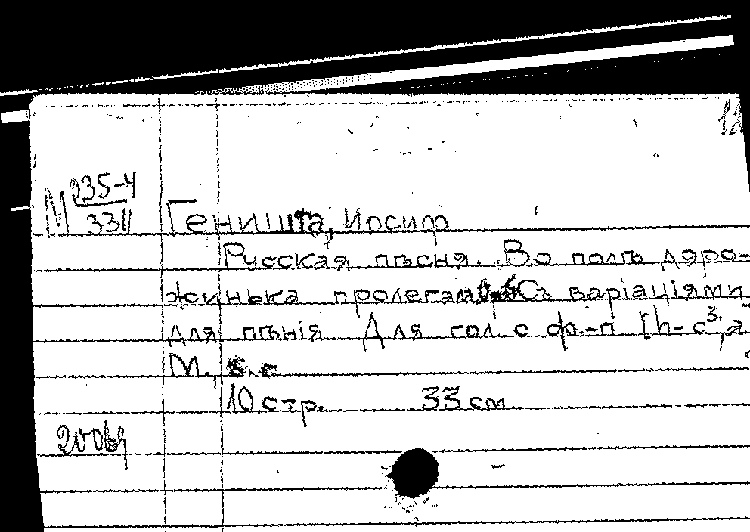 12
М 235-4
3311
Геништа, Иосиф
Русская пѣсня. Во полѣ доро-
жинька пролегала. Съ варіаціями
для пѣнія Для гол. с ф.-п [h-c³,
М.,
10 стр. 33 см